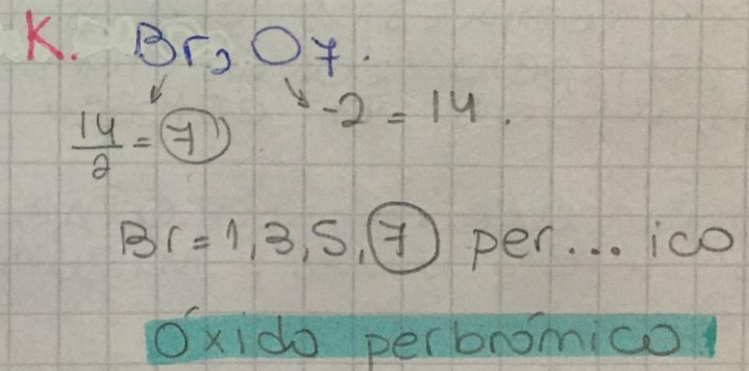 K. Br₂O₇.
14/2 = 7 -2 = 14.
Br = 1, 3, 5, 7 per... ico
Óxido perbrómico